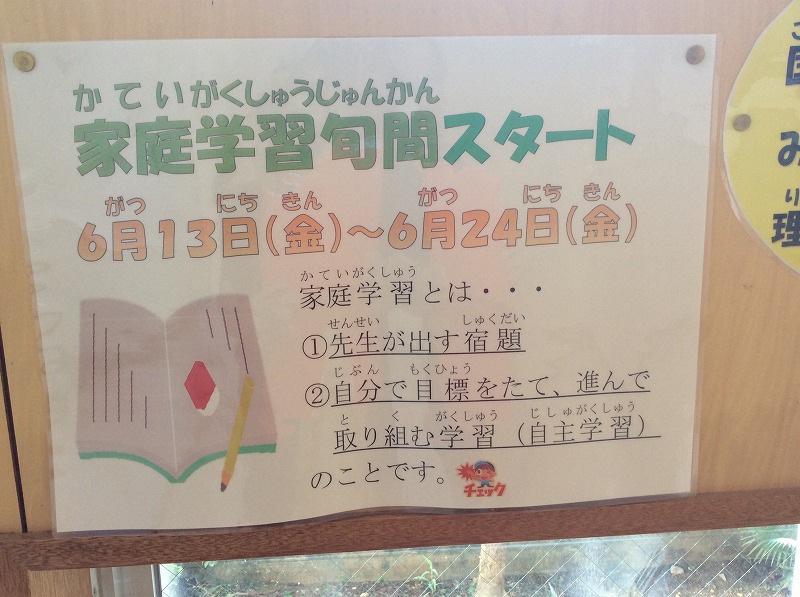 かていがくしゅうじゅんかん
家庭学習旬間スタート
がつ にち きん がつ にち きん
6月13日(金)～6月24日(金)
かていがくしゅう
家庭学習とは・・・
せんせい しゅくだい
①先生が出す宿題
じぶん もくひょう
②自分で目標をたて、進んで
と く がくしゅう じしゅがくしゅう
取り組む学習(自主学習)
のことです。
チェック
み
り
理